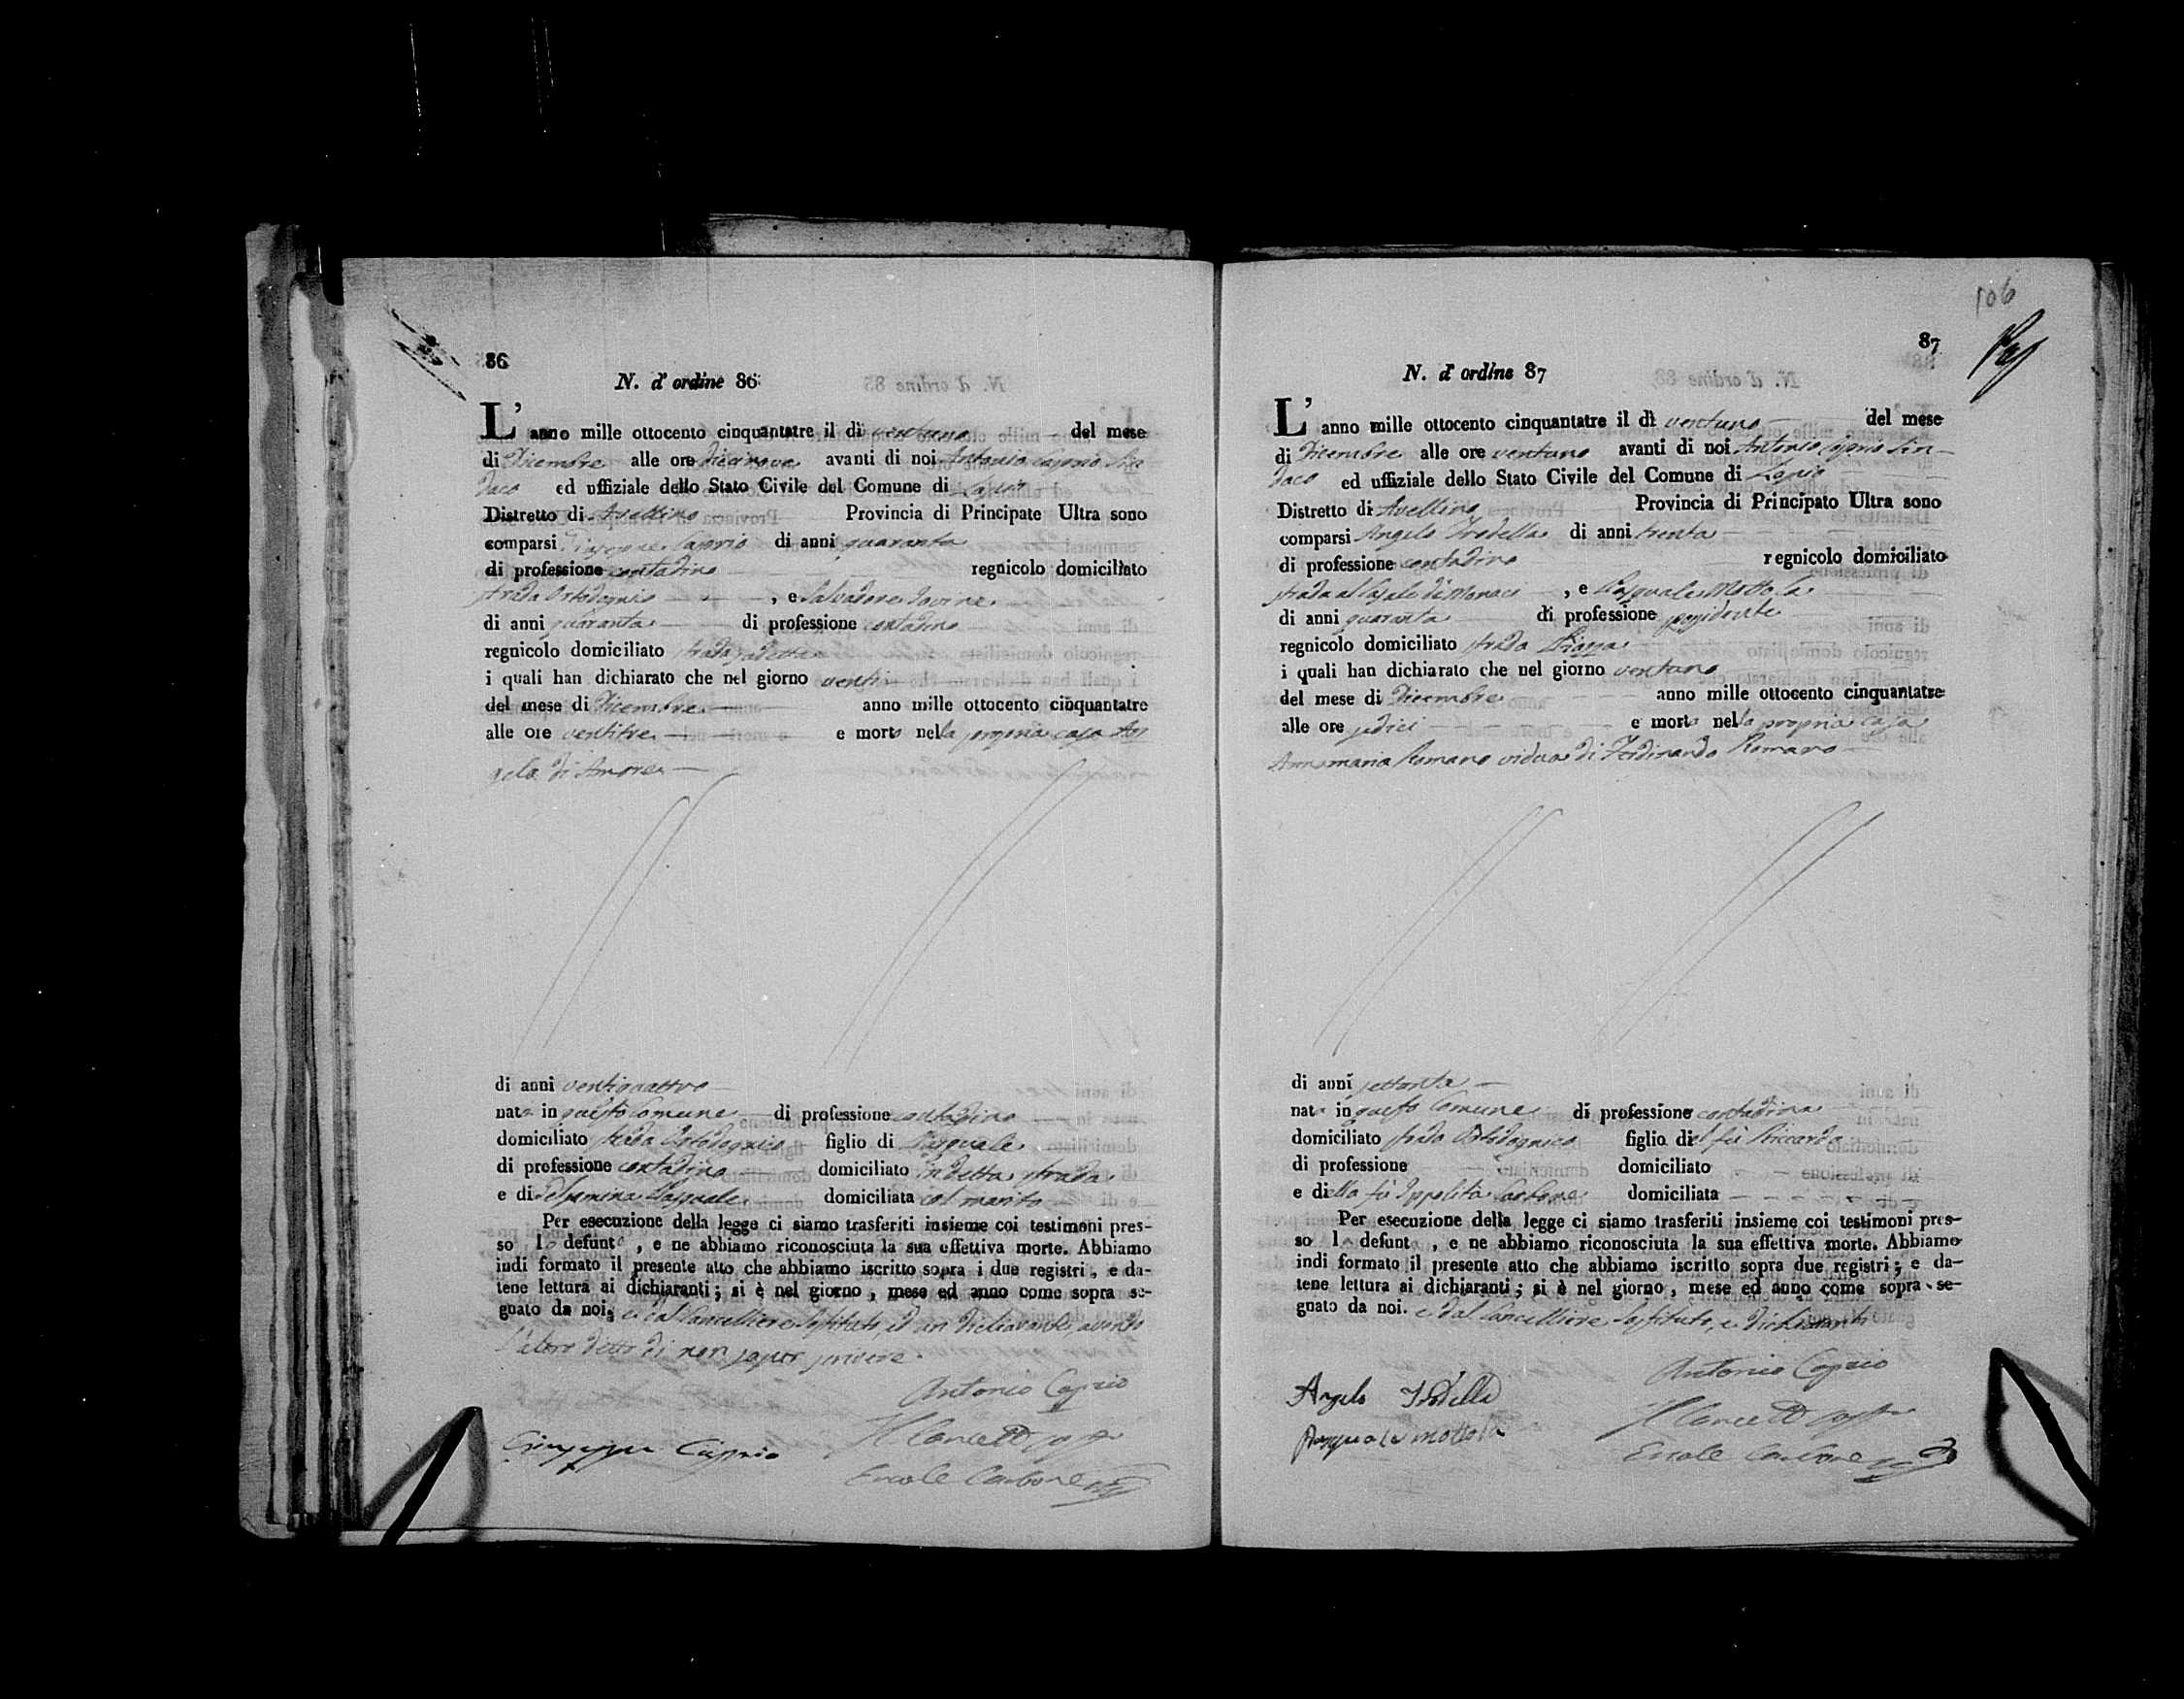 86
N. d' ordine 86
L' anno mille ottocento cinquantatre il dì ventuno del mese
di Dicembre alle ore diecinove avanti di noi Antonio Caprio Sin
daco ed uffiziale dello Stato Civile del Comune di Lapio
Distretto di Avellino Provincia di Principato Ultra sono
comparsi Giuseppe Caprio di anni quaranta
di professione contadino regnicolo domiciliato
strada Ortodognico , e Salvadore Iovine
di anni quaranta di professione contadino
regnicolo domiciliato strada sudetta
i quali han dichiarato che nel giorno venti
del mese di Dicembre anno mille ottocento cinquantatre
alle ore ventitre e morta nella propria casa An
gela di Amore
di anni ventiquattro
nata in questo Comune di professione contadina
domiciliato strada Ortodognico figlio di Pasquale
di professione contadino domiciliato in detta strada
e di Pasquale domiciliata col marito
Per esecuzione della legge ci siamo trasferiti insieme coi testimoni pres-
so la defunta , e ne abbiamo riconosciuta la sua effettiva morte. Abbiamo
indi formato il presente atto che abbiamo iscritto sopra i due registri, e da-
tene lettura ai dichiaranti; si è nel giorno, mese ed anno come sopra se-
gnato da noi, e dal Cancelliere Sostituto, ed un dichiarante, avendo
l'altro detto di non saper scrivere.
Antonio Caprio
Giuseppe Caprio Il Cancell sost
Ercole Carbone
106
87
N. d' ordine 87
L' anno mille ottocento cinquantatre il dì ventuno del mese
di Dicembre alle ore ventuno avanti di noi Antonio Caprio Sin-
daco ed uffiziale dello Stato Civile del Comune di Lapio
Distretto di Avellino Provincia di Principato Ultra sono
comparsi Angelo Trodella di anni trenta
di professione contadino regnicolo domiciliato
strada al Casale di Monaco , e Pasquale Mottola
di anni quaranta di professione possidente
regnicolo domiciliato strada Piazza
i quali han dichiarato che nel giorno ventuno
del mese di Dicembre anno mille ottocento cinquantatre
alle ore sedici e morta nella propria casa
Annamaria Romano vidua di Ferdinando Romano
di anni settanta
nata in questo Comune di professione contadina
domiciliato strada Ortodognico figlio del fù Riccardo
di professione domiciliato
e della fù Ippolita Carbone domiciliata
Per esecuzione della legge ci siamo trasferiti insieme coi testimoni pres-
so la defunt , e ne abbiamo riconosciuta la sua effettiva morte. Abbiamo
indi formato il presente atto che abbiamo iscritto sopra due registri; e da-
tene lettura ai dichiaranti; si è nel giorno, mese ed anno come sopra se-
gnato da noi. e dal Cancelliere Sostituto, e dichiaranti
Antonio Caprio
Angelo Trodella
Pasquale Mottola Il Cancell sost
Ercole Carbone